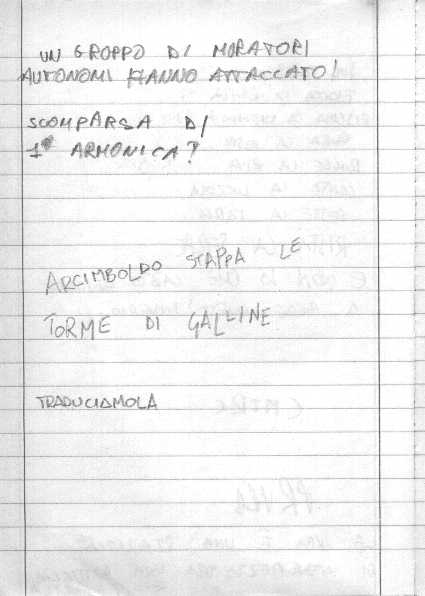 UN GROPPO DI MURATORI
AUTONOMI HANNO ATTACCATO!
SCOMPARSA DI
1 ARMONICA?
ARCIMBOLDO STAPPA LE
TORME DI GALLINE
TRADUCIAMOLA